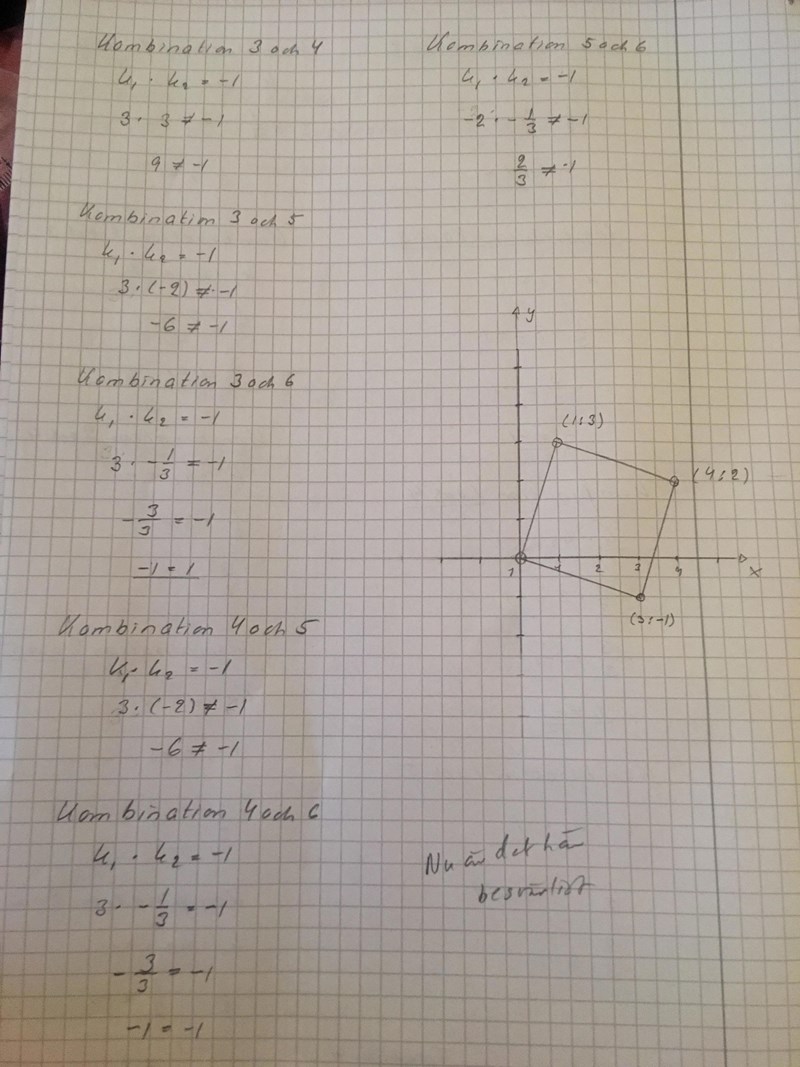 Kombination 3 och 4
k₁ · k₂ = -1
3 · 3 ≠ -1
9 ≠ -1
Kombination 3 och 5
k₁ · k₂ = -1
3 · (-2) ≠ -1
-6 ≠ -1
Kombination 3 och 6
k₁ · k₂ = -1
3 · -1/3 = -1
-3/3 = -1
-1 = 1
Kombination 4 och 5
k₁ · k₂ = -1
3 · (-2) ≠ -1
-6 ≠ -1
Kombination 4 och 6
k₁ · k₂ = -1
3 · -1/3 = -1
-3/3 = -1
-1 = -1
Kombination 5 och 6
k₁ · k₂ = -1
-2 · -1/3 ≠ -1
2/3 ≠ -1
y
(1;3)
(4;2)
1 1 2 3 4
x
(3;-1)
Nu är det här
besvärligt